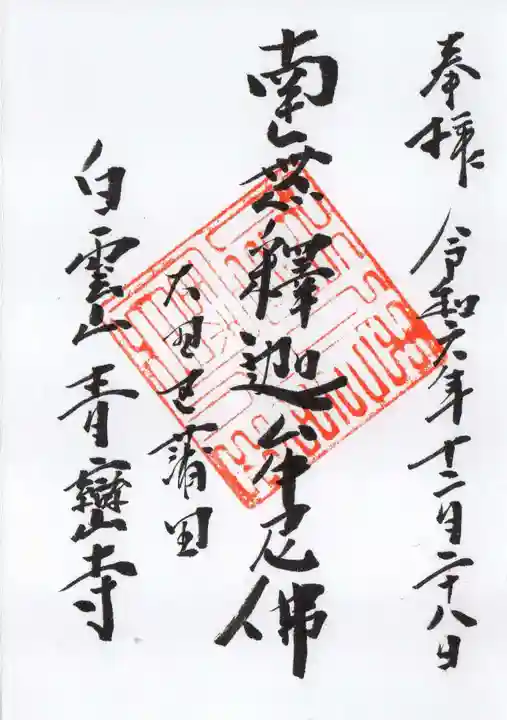 奉拝 令和六年十二月二十八日
南無釋迦牟尼佛
大田区蒲田
白雲山 青巒寺